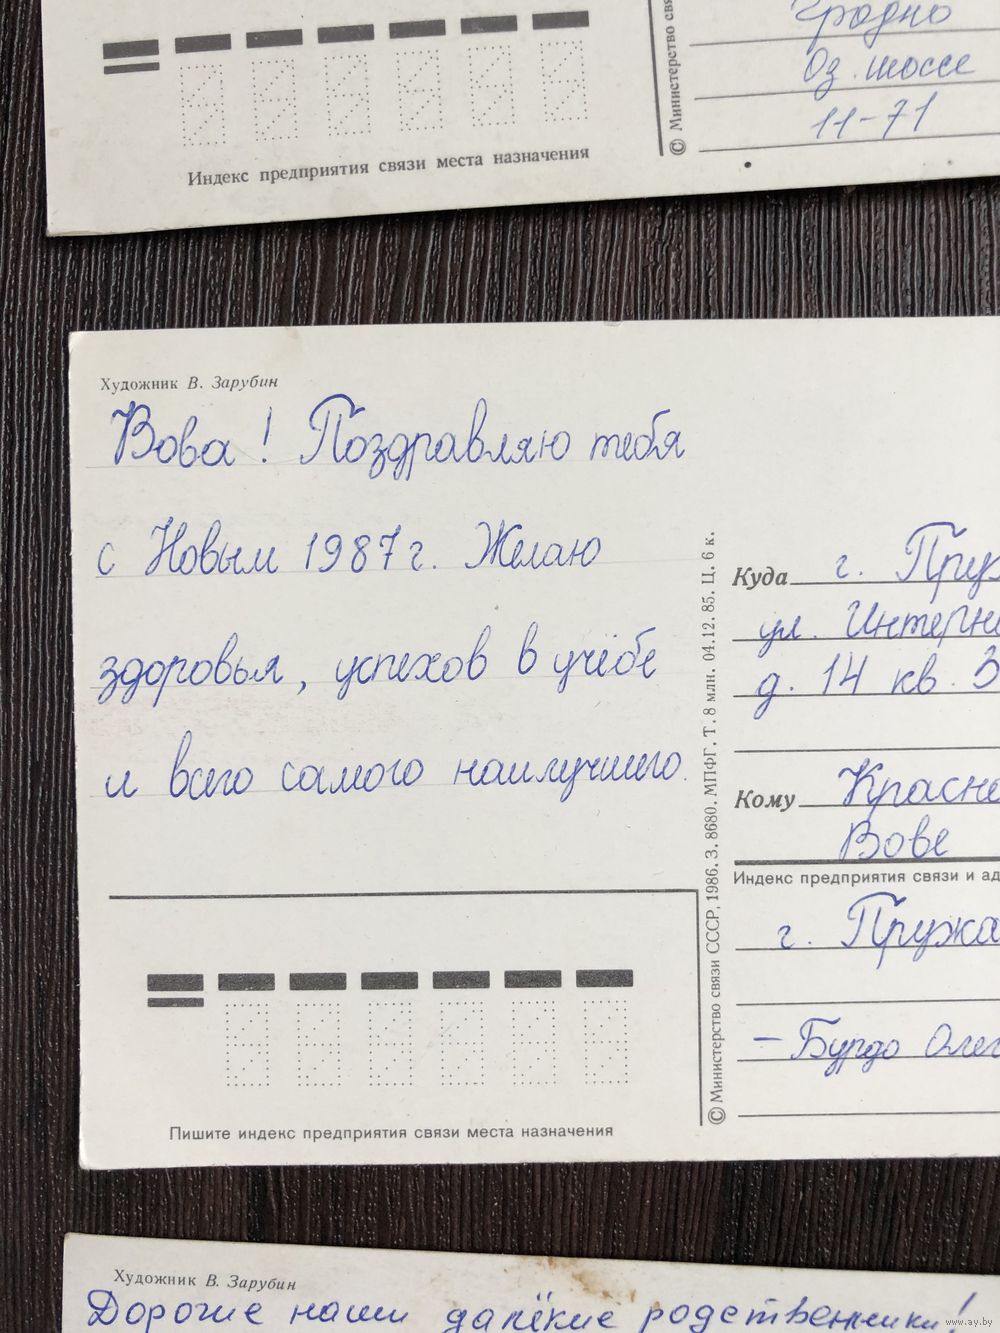 Гродно
Оз. шоссе
11-71
Индекс предприятия связи места назначения
© Министерство
Художник В. Зарубин
Вова! Поздравляю тебя
с Новым 1987 г. Желаю
здоровья, успехов в учёбе
и всего самого наилучшего.
Куда г.
ул.
д. 14 кв. 3
Кому
Вове
Индекс предприятия связи и
г.
– Бурдо
© Министерство связи СССР, 1986. З. 8680. МПФГ. Т. 8 млн. 04.12.85. Ц. 6 к.
Пишите индекс предприятия связи места назначения
Художник В. Зарубин
Дорогие наши далёкие родственники!
www.ay.by